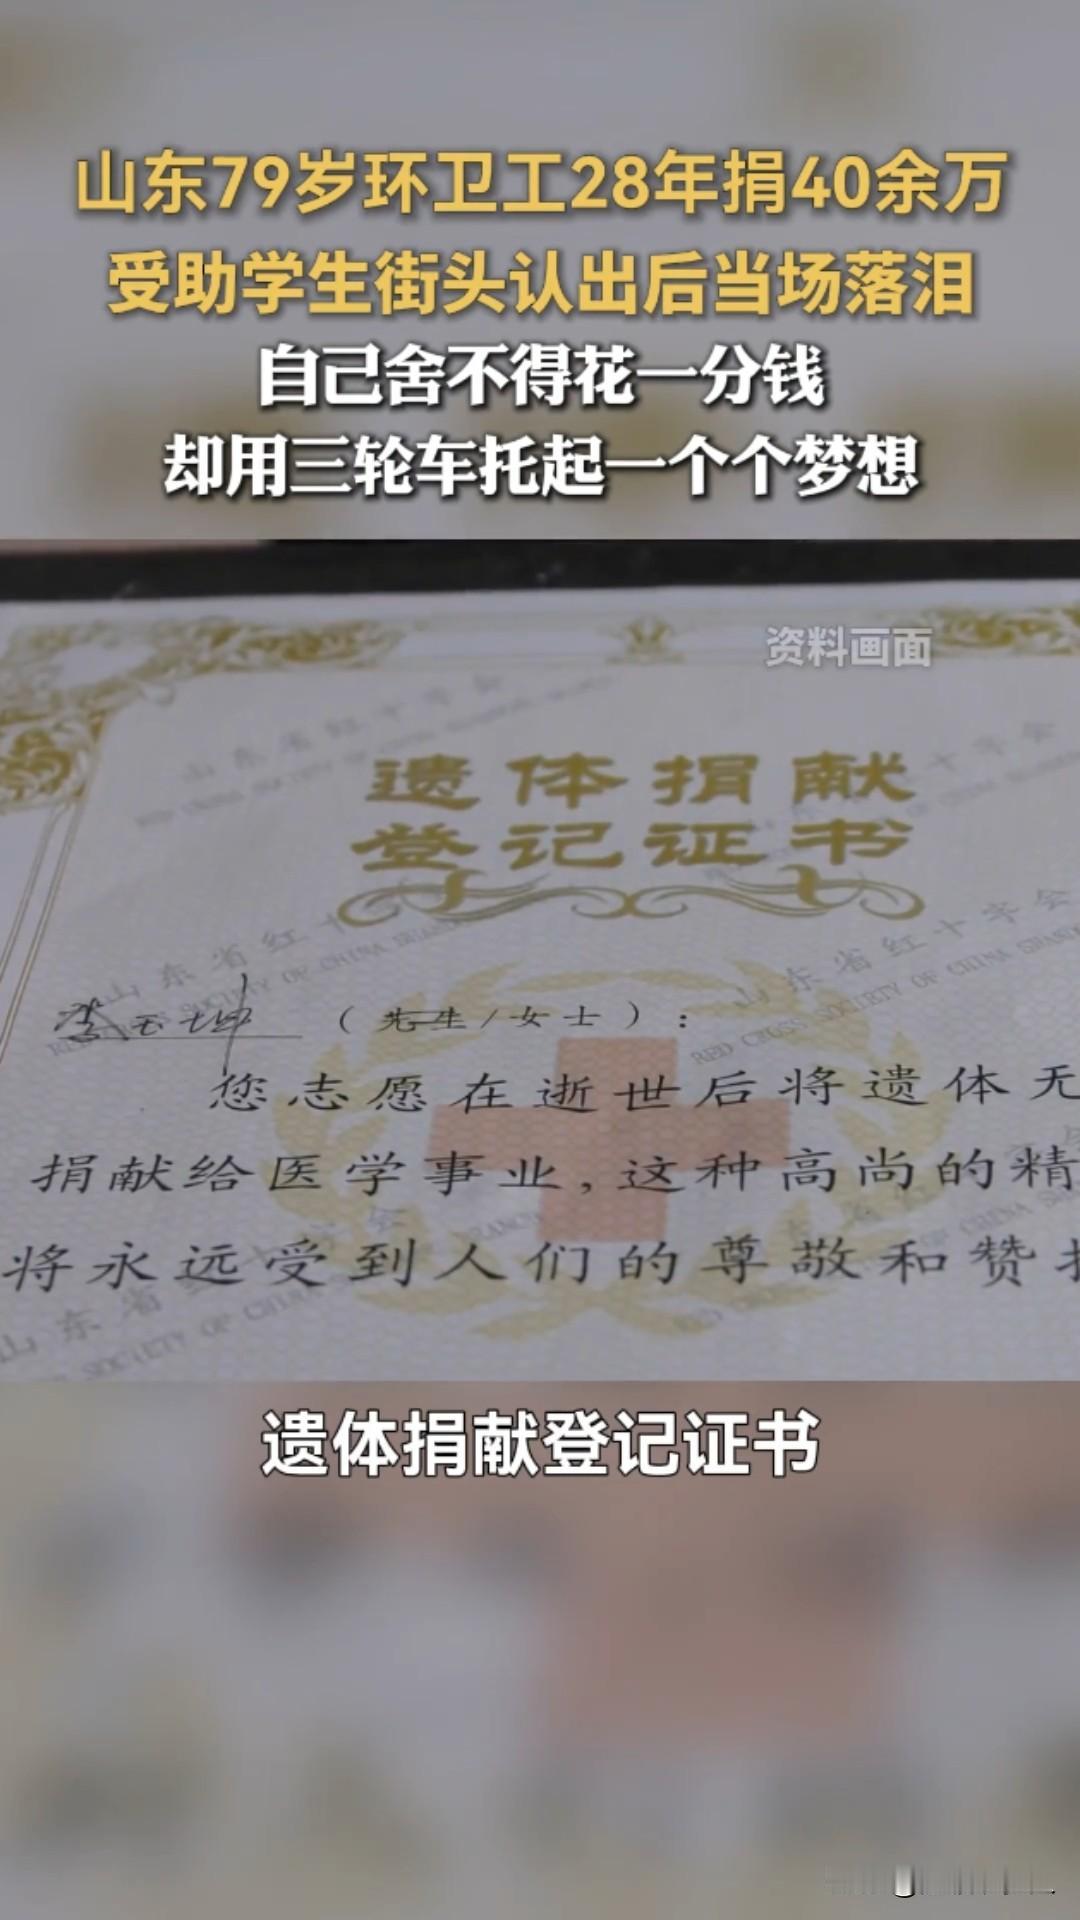 山东79岁环卫工28年捐40余万
受助学生街头认出后当场落泪
自己舍不得花一分钱
却用三轮车托起一个个梦想
资料画面
遗体捐献
登记证书
（先生/女士）：
您志愿在逝世后将遗体无
捐献给医学事业,这种高尚的精
将永远受到人们的尊敬和赞
遗体捐献登记证书
山东省红十字会
RED CROSS SOCIETY OF CHINA SHAND